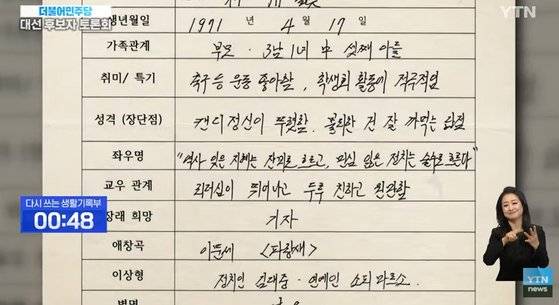 더불어민주당
대선 후보자 토론회
YTN
생년월일 1971 년 4 월 17 일
가족관계 부모 · 3남 1녀 中 셋째 아들
취미/ 특기 축구 등 운동 좋아함, 학생회 활동에 적극적임
성격 (장단점) 캔디정신이 뚜렷함, 불리한 건 잘 까먹는
좌우명
교우 관계 리더십이 뛰어나고 두루 친하고 원만함
장래 희망 기자
애창곡 이문세 <파랑새>
이상형 정치인 김대중 · 연예인 소피 마르소
별명
다시 쓰는 생활기록부
00:48
YTN
news